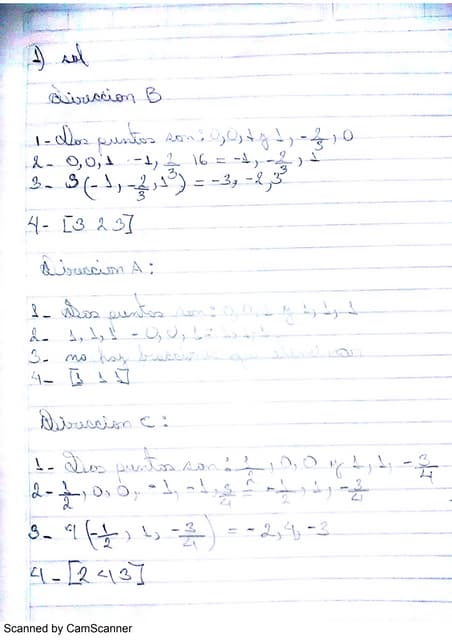 1) sol
Direccion B
1- Dos puntos son: 0,0,1 y 1, -2/3, 0
2- 0,0,1 -1, 2/3 16 = -1, -2/3, 1
3- 3(-1, -2/3, 1) = -3, -2, 3
4- [3 2 3]
Direccion A:
1- Dos puntos son: 0,0,1 y 1,1,1
2- 1,1,1 - 0,0,1 =
3- no hay que
4- [1 1 1]
Direccion C:
1- Dos puntos son: 1/2, 0, 0 y 1, 1, -3/4
2- 1/2, 0, 0, -1, -1, 3/4 = -1/2, 1, -3/4
3- 4(-1/2, 1, -3/4) = -2, 4, -3
4- [2 4 3]
Scanned by CamScanner